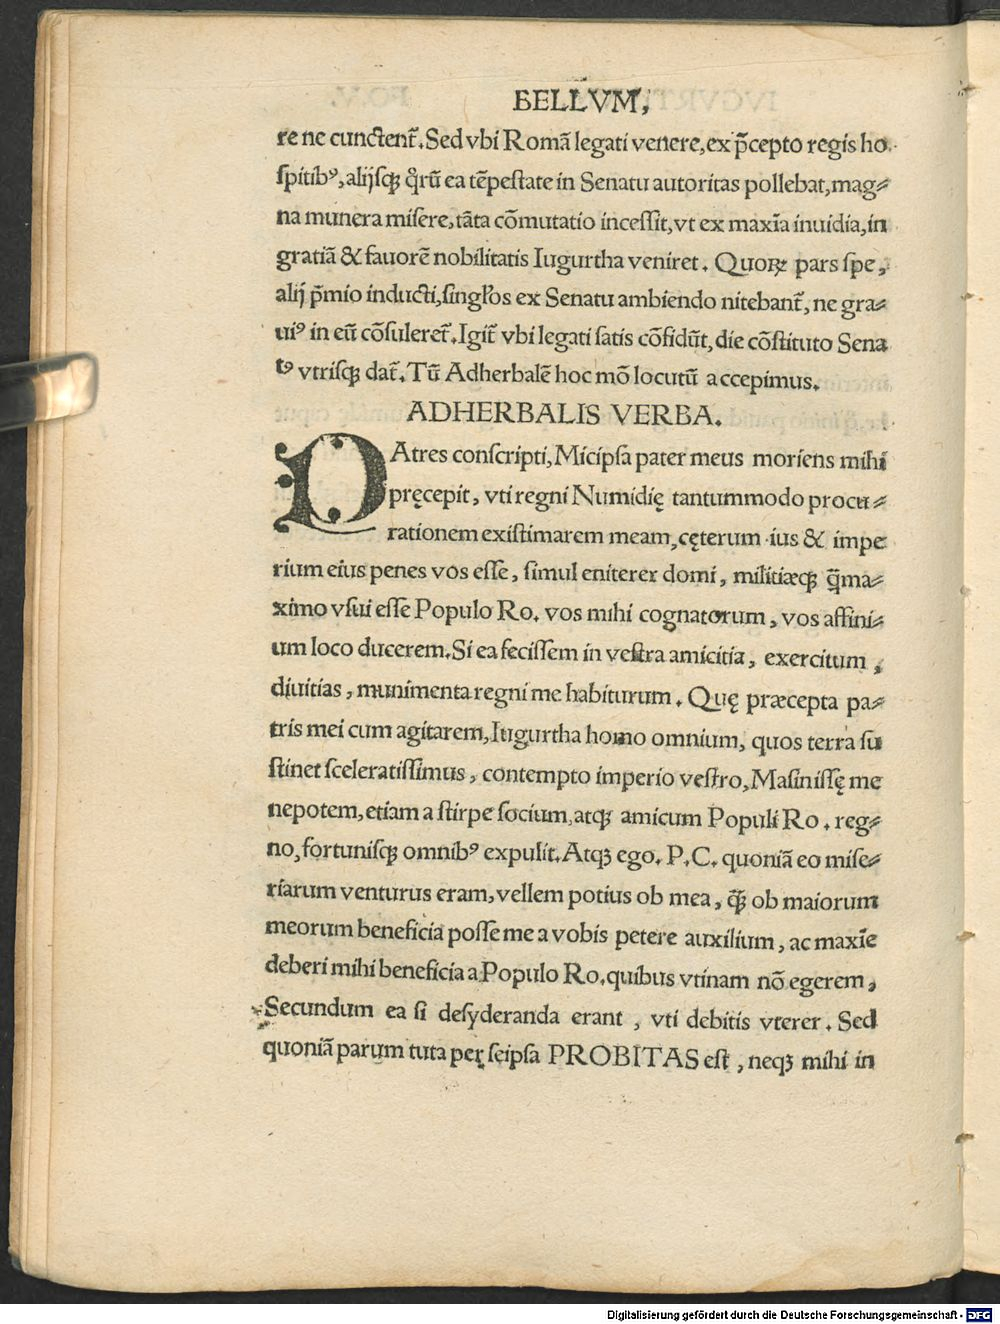 BELLVM,
re ne cunctent᷒. Sed vbi Romã legati venere, ex p̃cepto regis ho
ſpitibꝰ, alijſqꝫ q̊rũ ea tẽpeſtate in Senatu autoritas pollebat, mag⸗
na munera miſere, tãta cõmutatio inceſſit, vt ex maxĩa inuidia, in
gratiã & fauorẽ nobilitatis Iugurtha veniret. Quoꝝ pars ſpe,
alij p̃mio inducti, ſingl'os ex Senatu ambiendo nitebant᷒, ne gra⸗
uiꝰ in eũ cõſuleret᷒. Igit᷒ vbi legati ſatis cõfidũt, die cõſtituto Sena
tꝰ vtriſqꝫ dat᷒. Tũ Adherbalẽ hoc mõ locutũ accepimus.
ADHERBALIS VERBA.
PAtres conſcripti, Micipſa pater meus moriens mihi
pręcepit, vti regni Numidię tantummodo procu⸗
rationem exiſtimarem meam, cęterum ius & impe
rium eius penes vos eſſe, ſimul eniterer domi, militiæqꝫ q̃ma⸗
ximo vſui eſſe Populo Ro. vos mihi cognatorum, vos affini⸗
um loco ducerem. Si ea feciſſem in veſtra amicitia, exercitum,
diuitias, munimenta regni me habiturum. Quę præcepta pa⸗
tris mei cum agitarem, Iugurtha homo omnium, quos terra ſu
ſtinet ſceleratiſſimus, contempto imperio veſtro, Maſiniſſę me
nepotem, etiam a ſtirpe ſocium, atqꝫ amicum Populi Ro. reg⸗
no, fortuniſqꝫ omnibꝰ expulit. Atqꝫ ego. P. C. quoniã eo miſe⸗
riarum venturus eram, vellem potius ob mea, q̃ꝫ ob maiorum
meorum beneficia poſſe me a vobis petere auxilium, ac maxĩe
deberi mihi beneficia a Populo Ro. quibus vtinam nõ egerem,
Secundum ea ſi deſyderanda erant, vti debitis vterer. Sed
quoniã parum tuta per ſeipſa PROBITAS eſt, neqꝫ mihi in
Digitalisierung gefördert durch die Deutsche Forschungsgemeinschaft - DFG